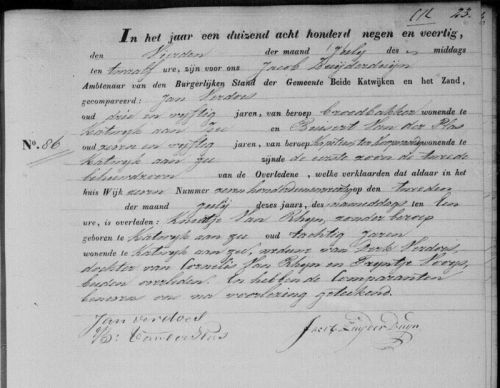 23.
In het jaar een duizend acht honderd negen en veertig,
den Vierden der maand Julij des middags
ten twaalf ure, zijn voor ons Jacob Zuijderduijn
Ambtenaar van den Burgerlijken Stand der Gemeente Beide Katwijken en het Zand,
gecompareerd: Jan Verdoes
oud drie en vijftig jaren, van beroep broodbakker wonende te
Katwijk aan Zee en Van der Plas
oud zeven en vijftig jaren, van beroep wonende te
No. 86
Katwijk aan Zee zijnde de eerste zoon de tweede
behuwdzoon van de Overledene, welke verklaarden dat aldaar in het
huis Wijk zeven Nummer op den tweeden
der maand Julij dezes jaars, des namiddags ten een
ure, is overleden: Van Rhyn, zonder beroep
geboren te Katwyk aan Zee oud tachtig jaren
wonende te Katwyk aan Zee, weduwe van Verdoes,
dochter van Cornelis Van Rhyn en
beiden overleden. En hebben de Comparanten
benevens ons na voorlezing geteekend.
Jan Verdoes
Van der Plas
Jacob Zuyderduyn